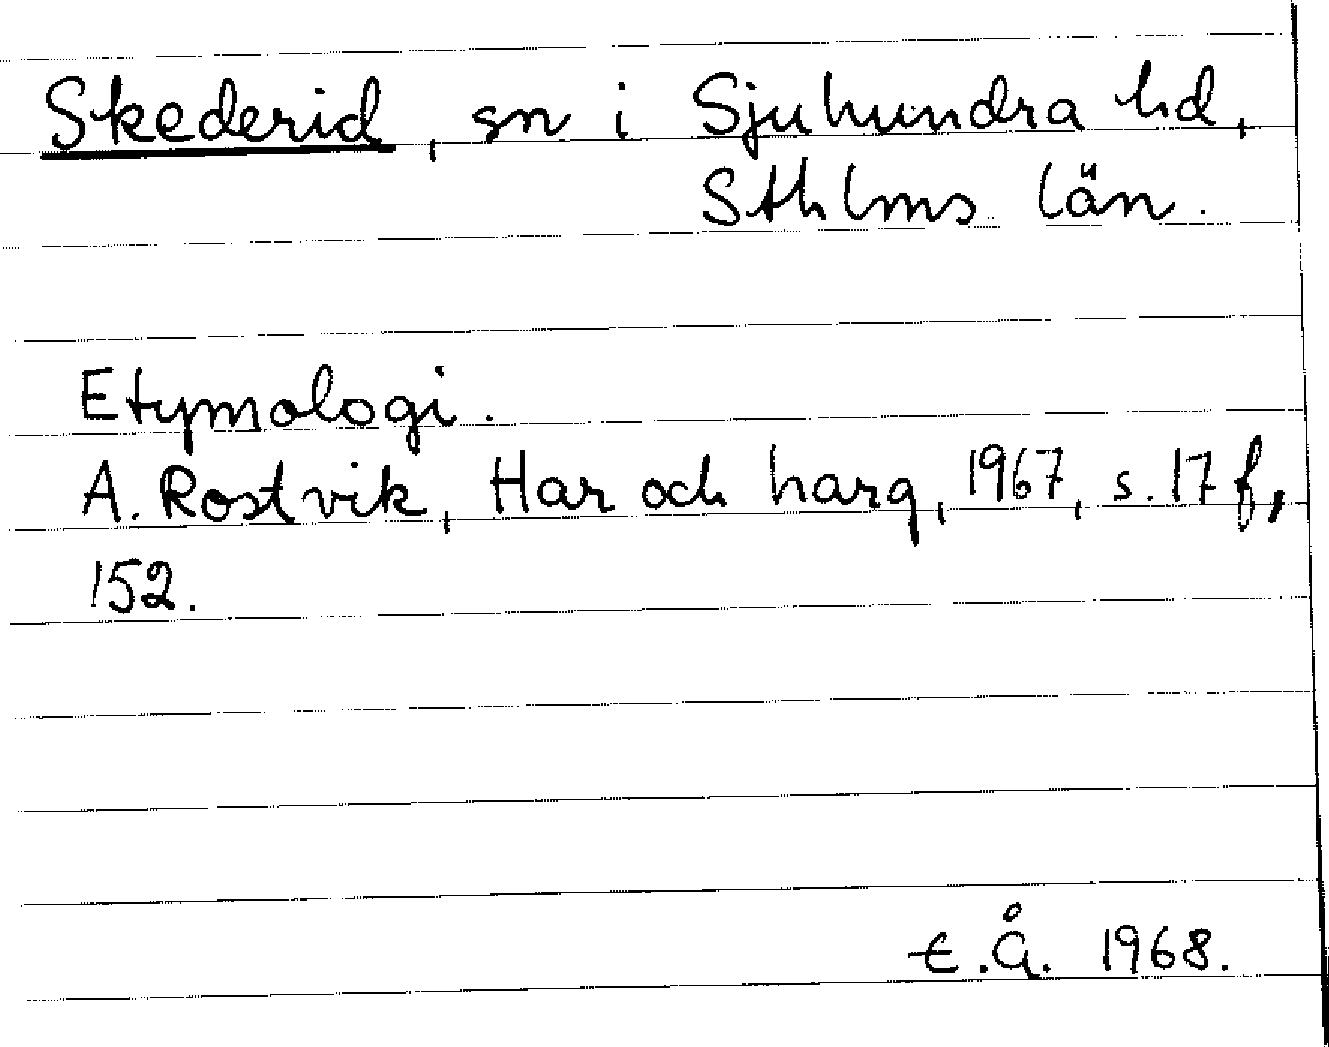 Skederid, sn i Sjuhundra hd,
Sthlms län.
Etymologi.
A. Rostvik, Har och harg, 1967, s. 17 f,
152.
t.Å. 1968.